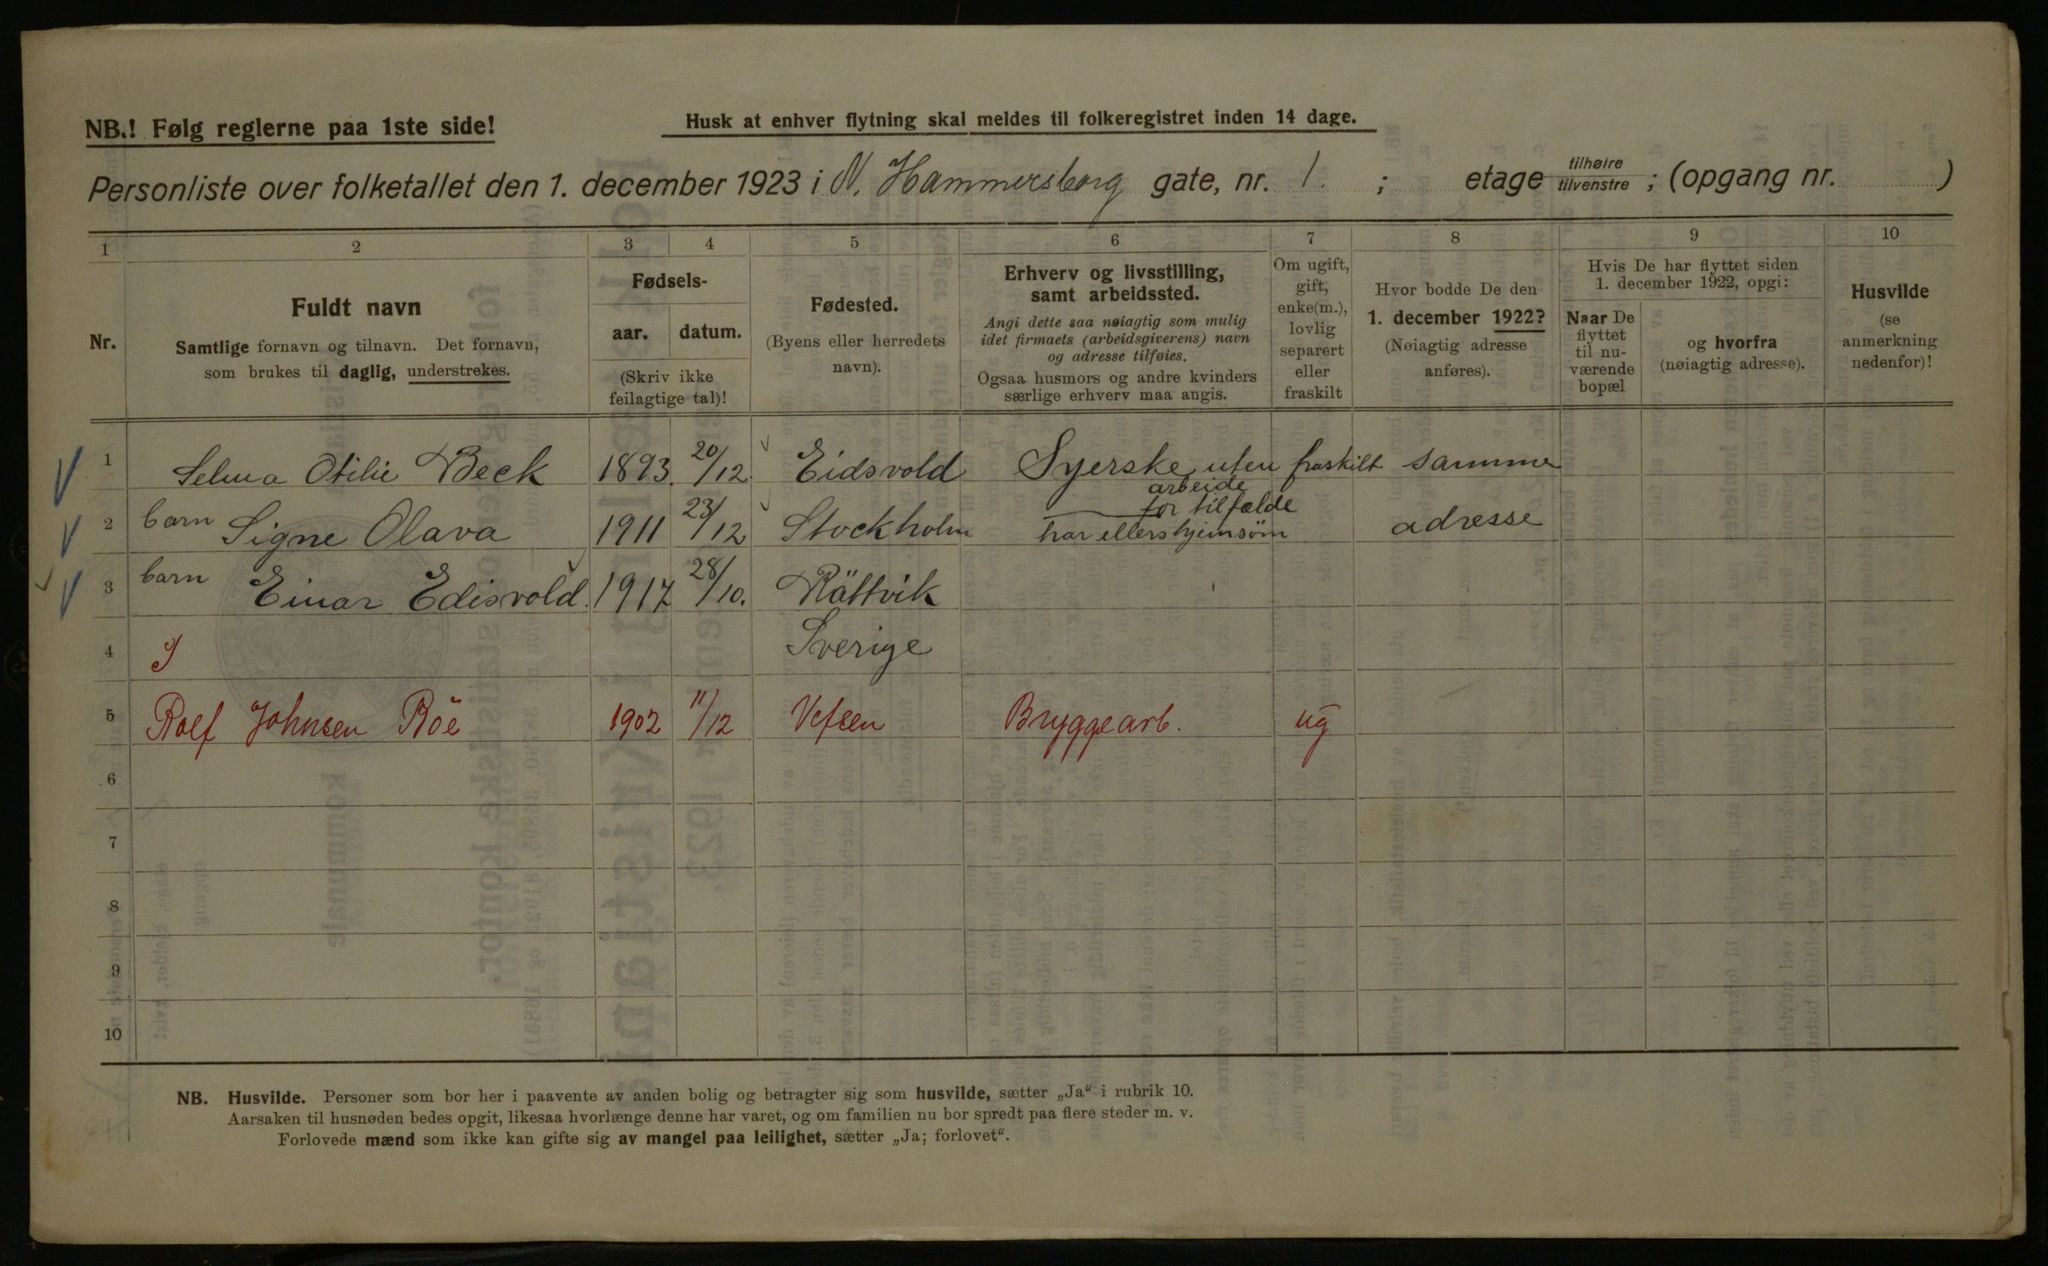 NB.! Følg reglerne paa 1ste side!
Husk at enhver flytning skal meldes til folkeregistret inden 14 dage.
Personliste over folketallet den 1. december 1923 i N. Hammersborg gate, nr. 1. ; etage tilhøire tilvenstre ; (opgang nr. )
1 2 3 4 5 6 7 8 9 10
Nr.
Fuldt navn
Samtlige fornavn og tilnavn. Det fornavn,
som brukes til daglig, understrekes.
Fødsels-
aar. datum.
(Skriv ikke
feilagtige tal)!
Fødested.
(Byens eller herredets
navn).
Erhverv og livsstilling,
samt arbeidssted.
Angi dette saa nøiagtig som mulig
idet firmaets (arbeidsgiverens) navn
og adresse tilføies.
Ogsaa husmors og andre kvinders
særlige erhverv maa angis.
Om ugift,
gift,
enke(m.),
lovlig
separert
eller
fraskilt
Hvor bodde De den
1. december 1922?
(Nøiagtig adresse
anføres).
Hvis De har flyttet siden
1. december 1922, opgi:
Naar De
flyttet
til nu-
værende
bopæl
og hvorfra
(nøiagtig adresse).
Husvilde
(se
anmerkning
nedenfor)!
1 Selma Otilie Beck 1893. 20/12. Eidsvold Syerske uten fraskilt samme
arbeide
for tilfælde
2 barn Signe Olava 1911 23/12 Stockholm har ellers hjemsøm adresse
3 barn Einar Edisvold. 1917 28/10. Rättvik
4 Sverige
5 Rolf Johnsen Röe 1902 11/12 Vefsen Bryggearb. ug
6
7
8
9
10
NB. Husvilde. Personer som bor her i paavente av anden bolig og betragter sig som husvilde, sætter „Ja“ i rubrik 10.
Aarsaken til husnøden bedes opgit, likesaa hvorlænge denne har varet, og om familien nu bor spredt paa flere steder m. v.
Forlovede mænd som ikke kan gifte sig av mangel paa leilighet, sætter „Ja; forlovet“.